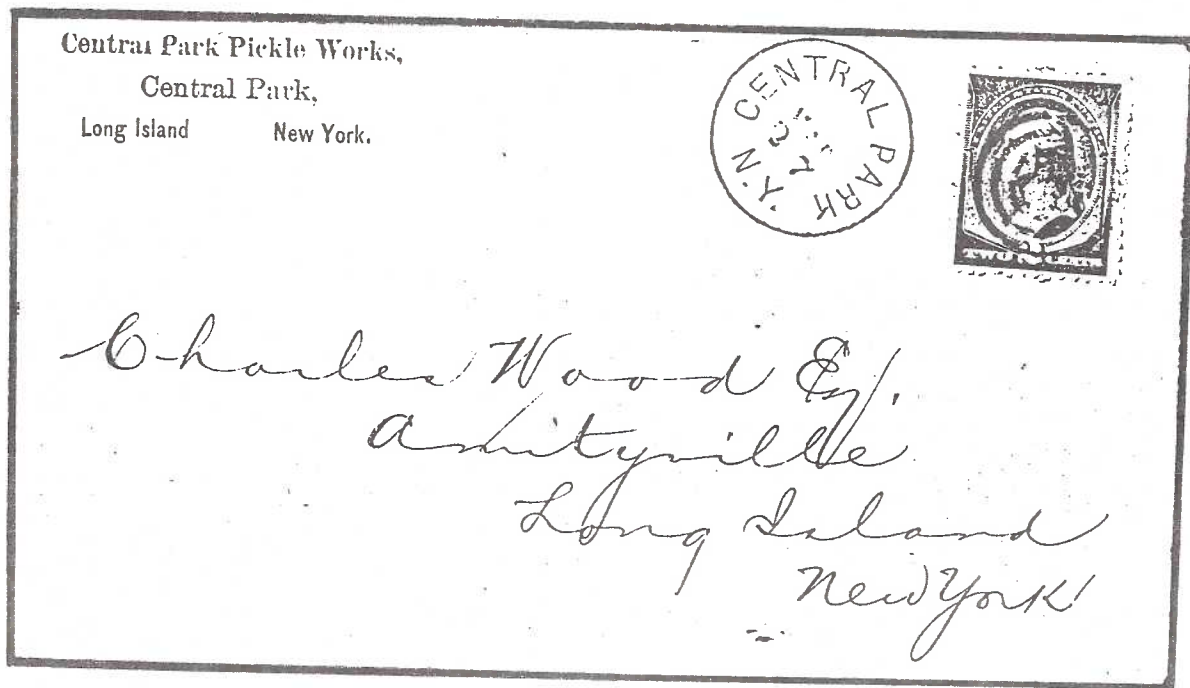 Central Park Pickle Works,
Central Park,
Long Island New York.
CENTRAL PARK N.Y.
TWO 2 CENTS
Charles Wood Esq.
Amityville
Long Island
New York